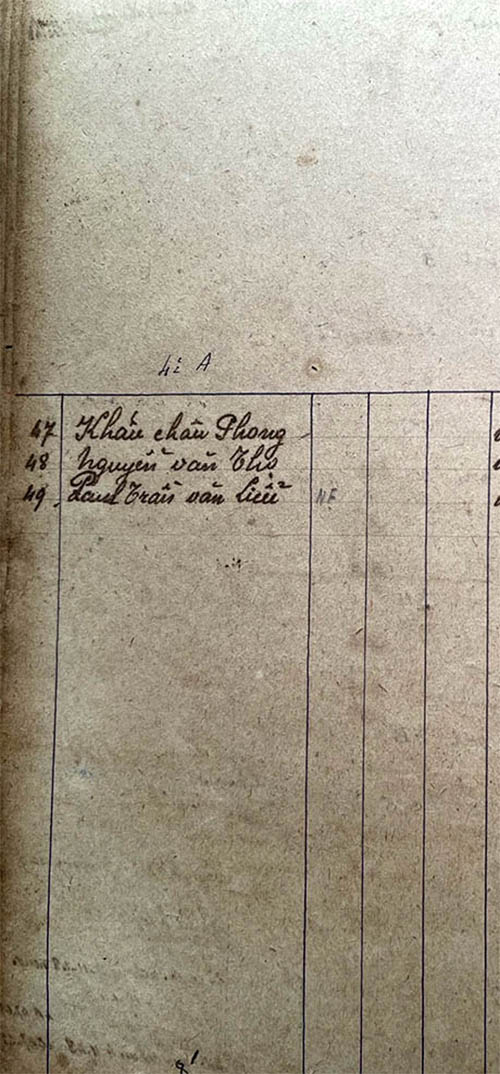 4è A
47 Khấu châu Phong
48 Nguyễn văn Thọ
49 Paul Trần văn Liễu